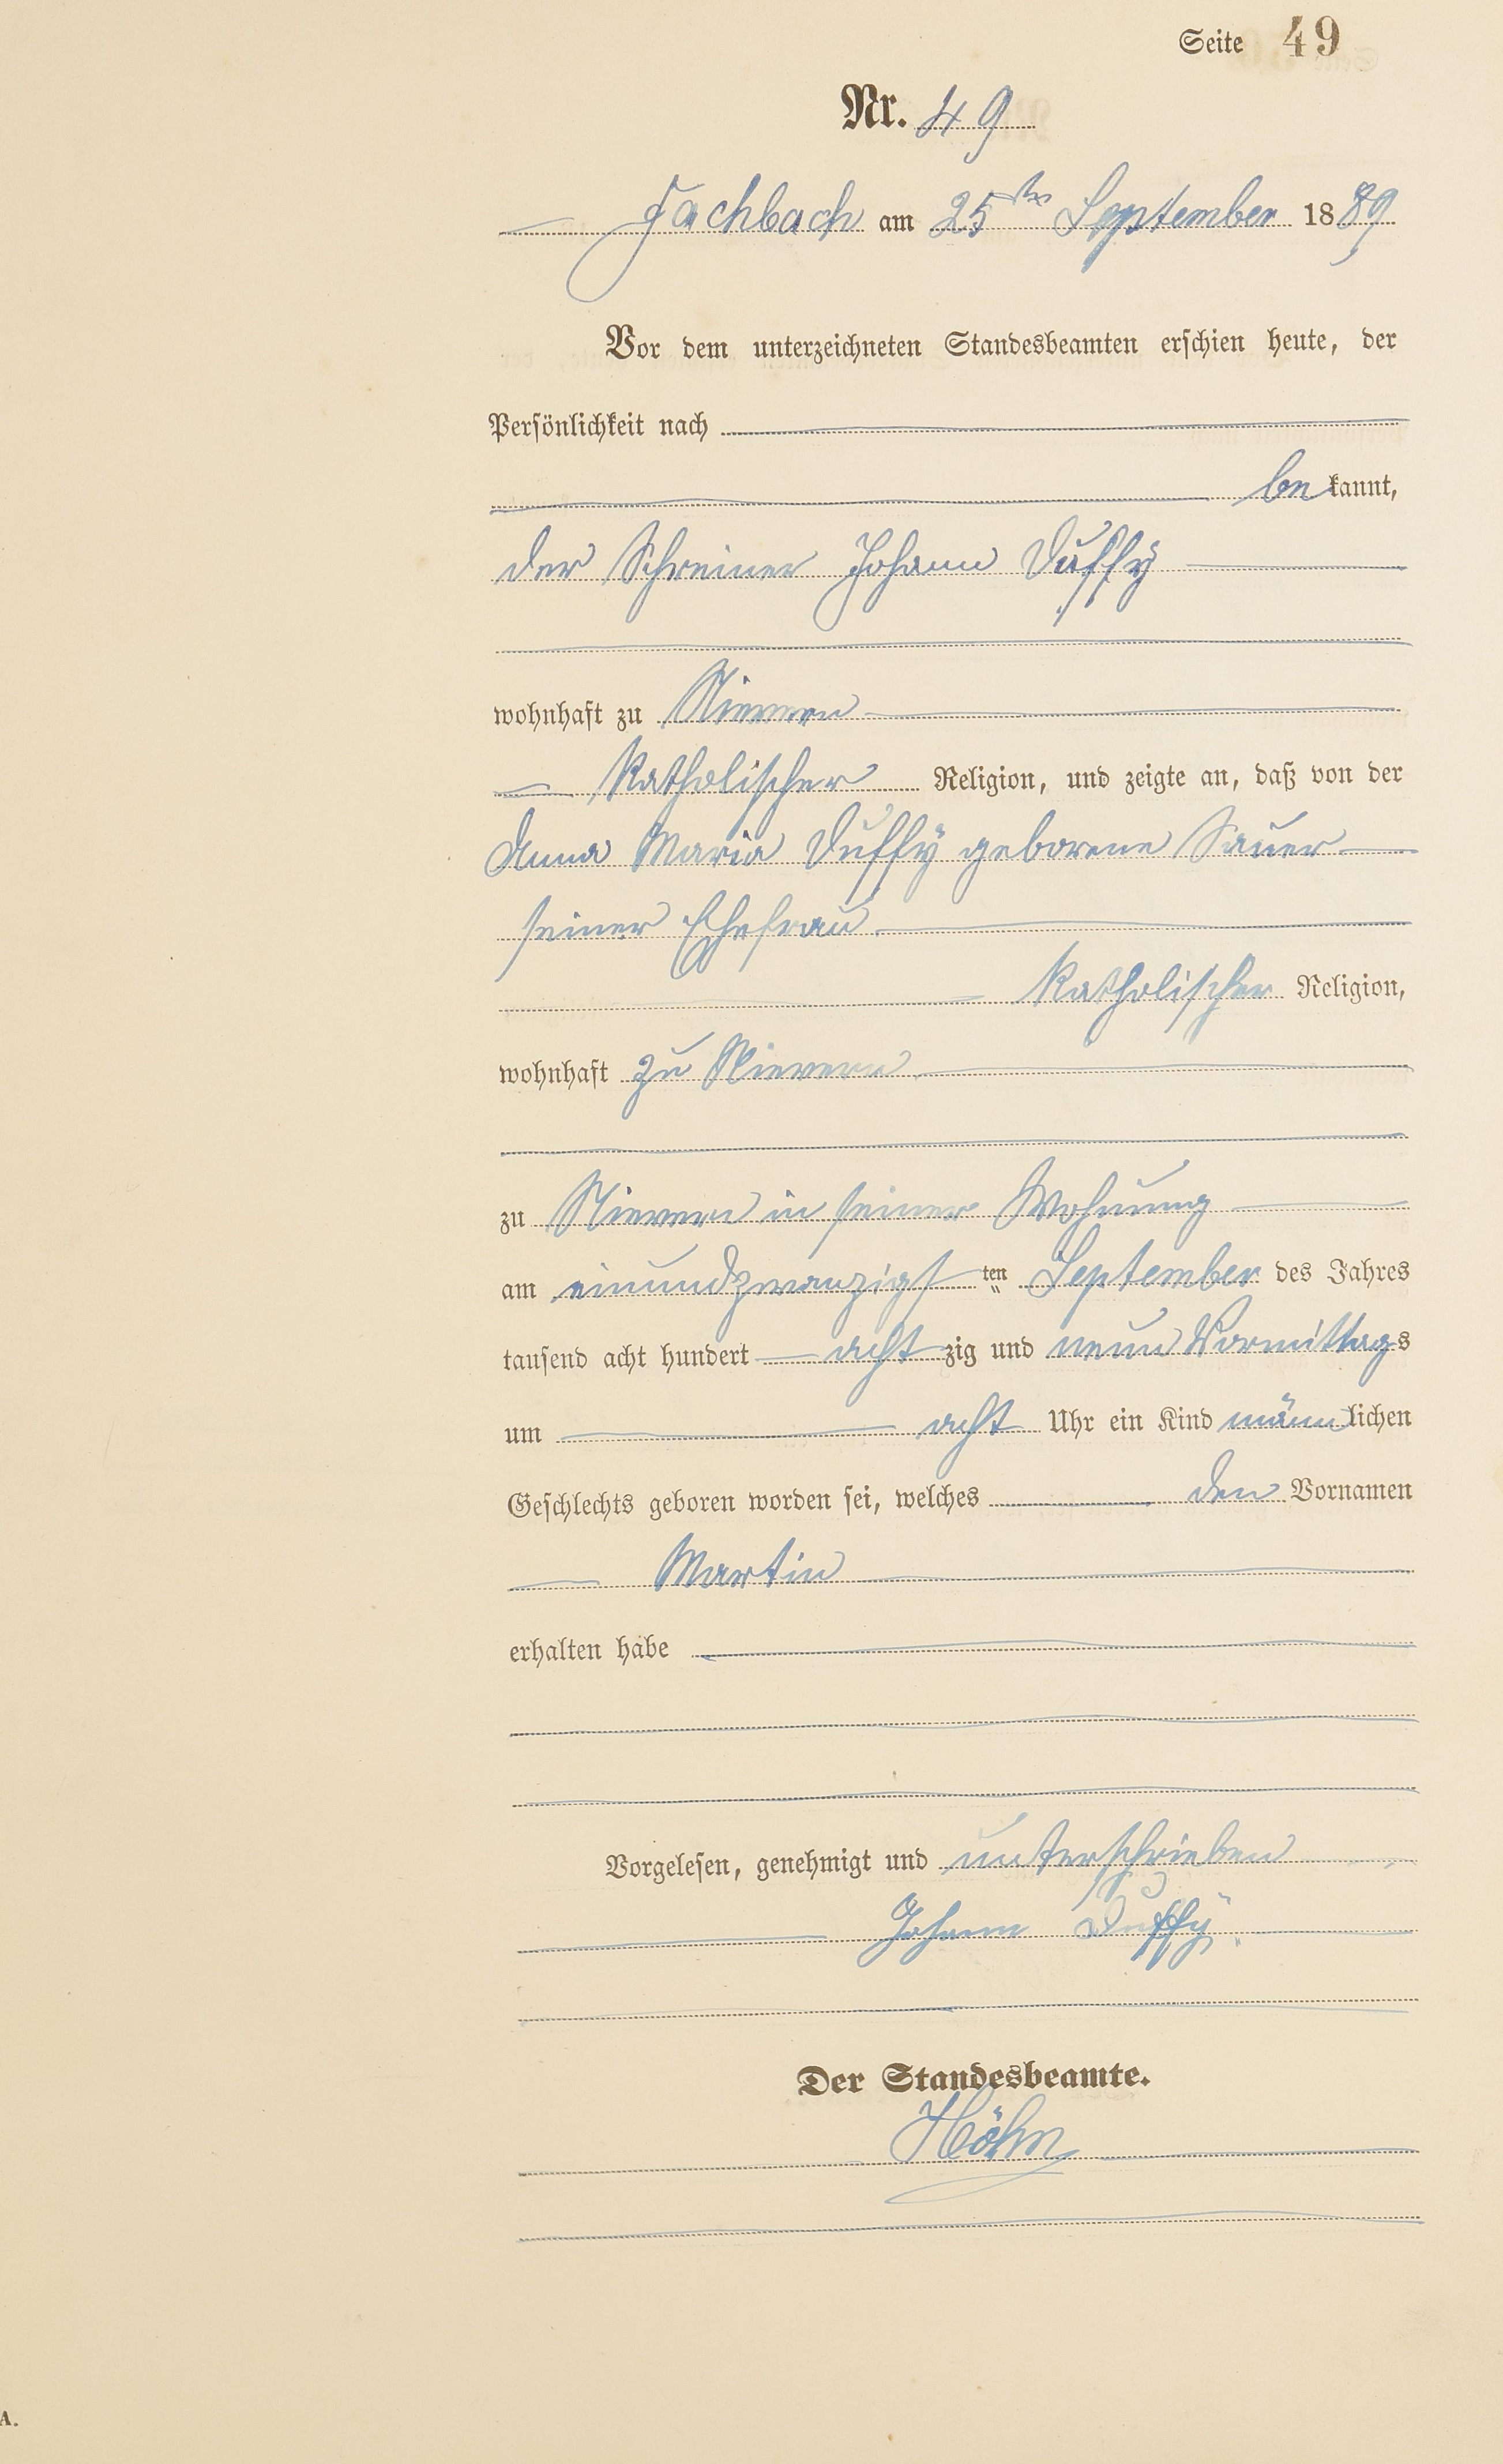 Seite 49
Nr. 49
Fachbach am 25ten September 1889
Vor dem unterzeichneten Standesbeamten erschien heute, der
Persönlichkeit nach
bekannt,
der Schreiner Johann Duffÿ
wohnhaft zu Nievern
katholischer Religion, und zeigte an, daß von der
Anna Maria Duffÿ geborene Sauer
seiner Ehefrau
katholischer Religion,
wohnhaft zu Nievern
zu Nievern in seiner Wohnung
am einundzwanzigsten September des Jahres
tausend acht hundert achtzig und neun Vormittags
um acht Uhr ein Kind männlichen
Geschlechts geboren worden sei, welches den Vornamen
Martin
erhalten habe
Vorgelesen, genehmigt und unterschrieben
Johann Duffÿ.
Der Standesbeamte.
Höhn
A.